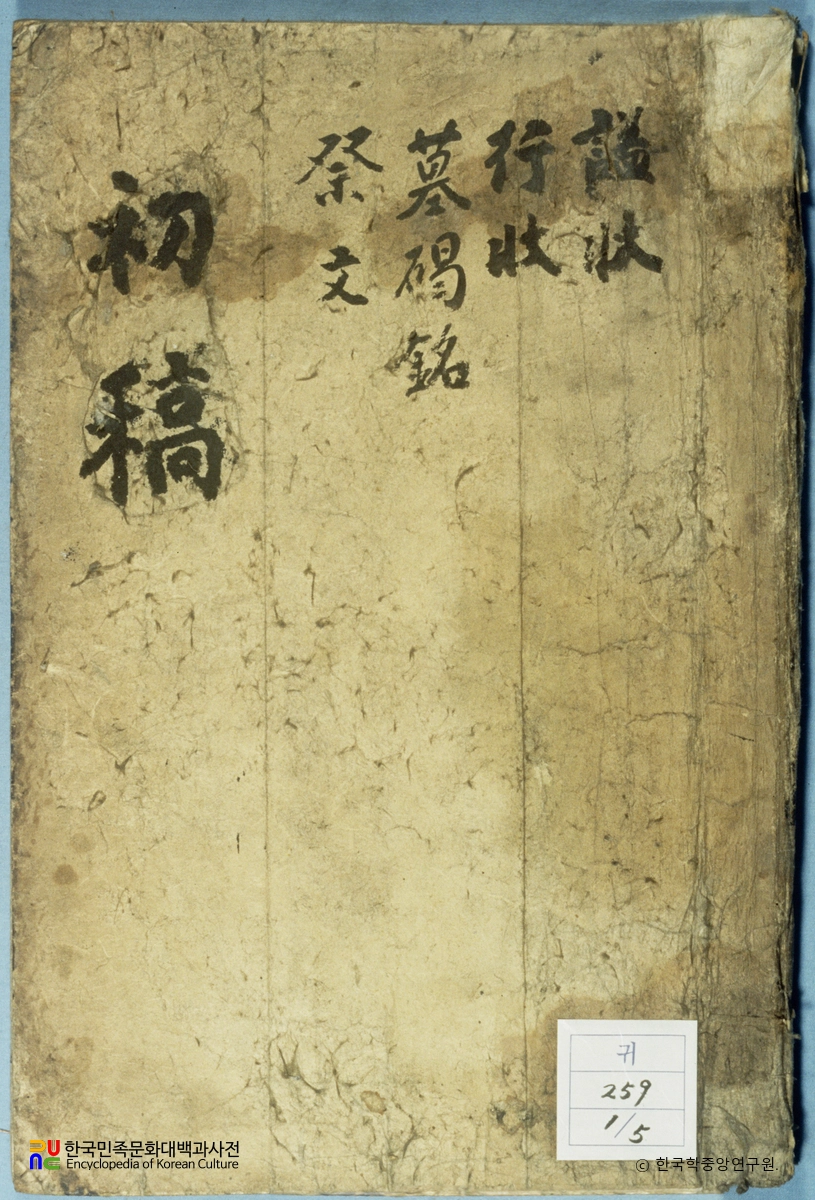 諡狀
行狀
墓碣銘
祭文
初稿
귀
259
1/5
한국민족문화대백과사전
Encyclopedia of Korean Culture
© 한국학중앙연구원.